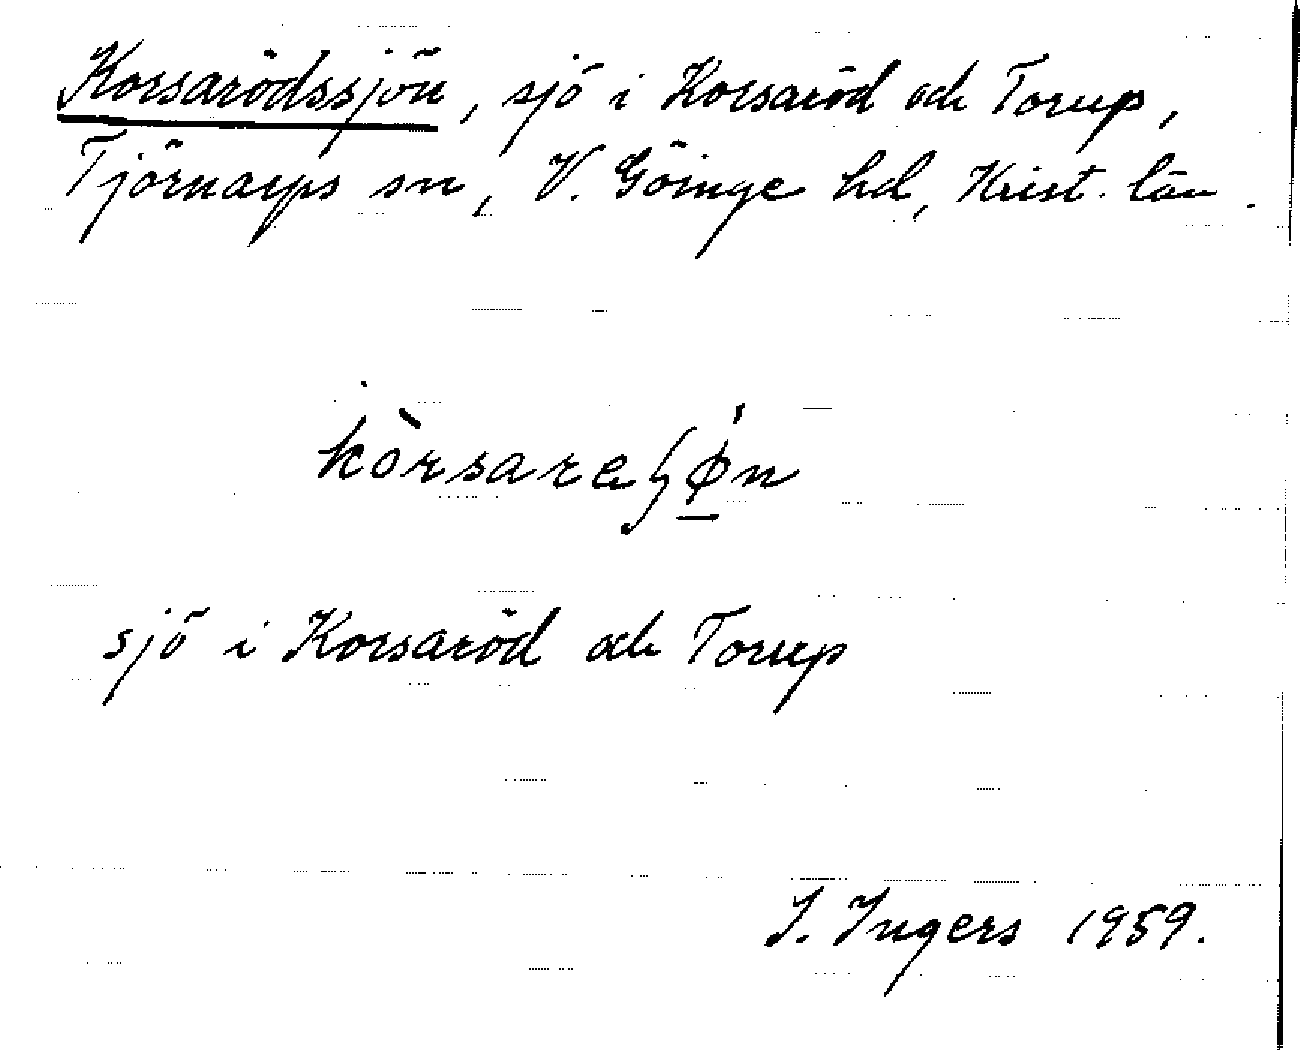 Korsarödssjön, sjö i Korsaröd och Torup,
Tjörnarps sn, V. Göinge hd, Krist. län.
kòrsareʃǿn
sjö i Korsaröd och Torup
I. Ingers 1959.